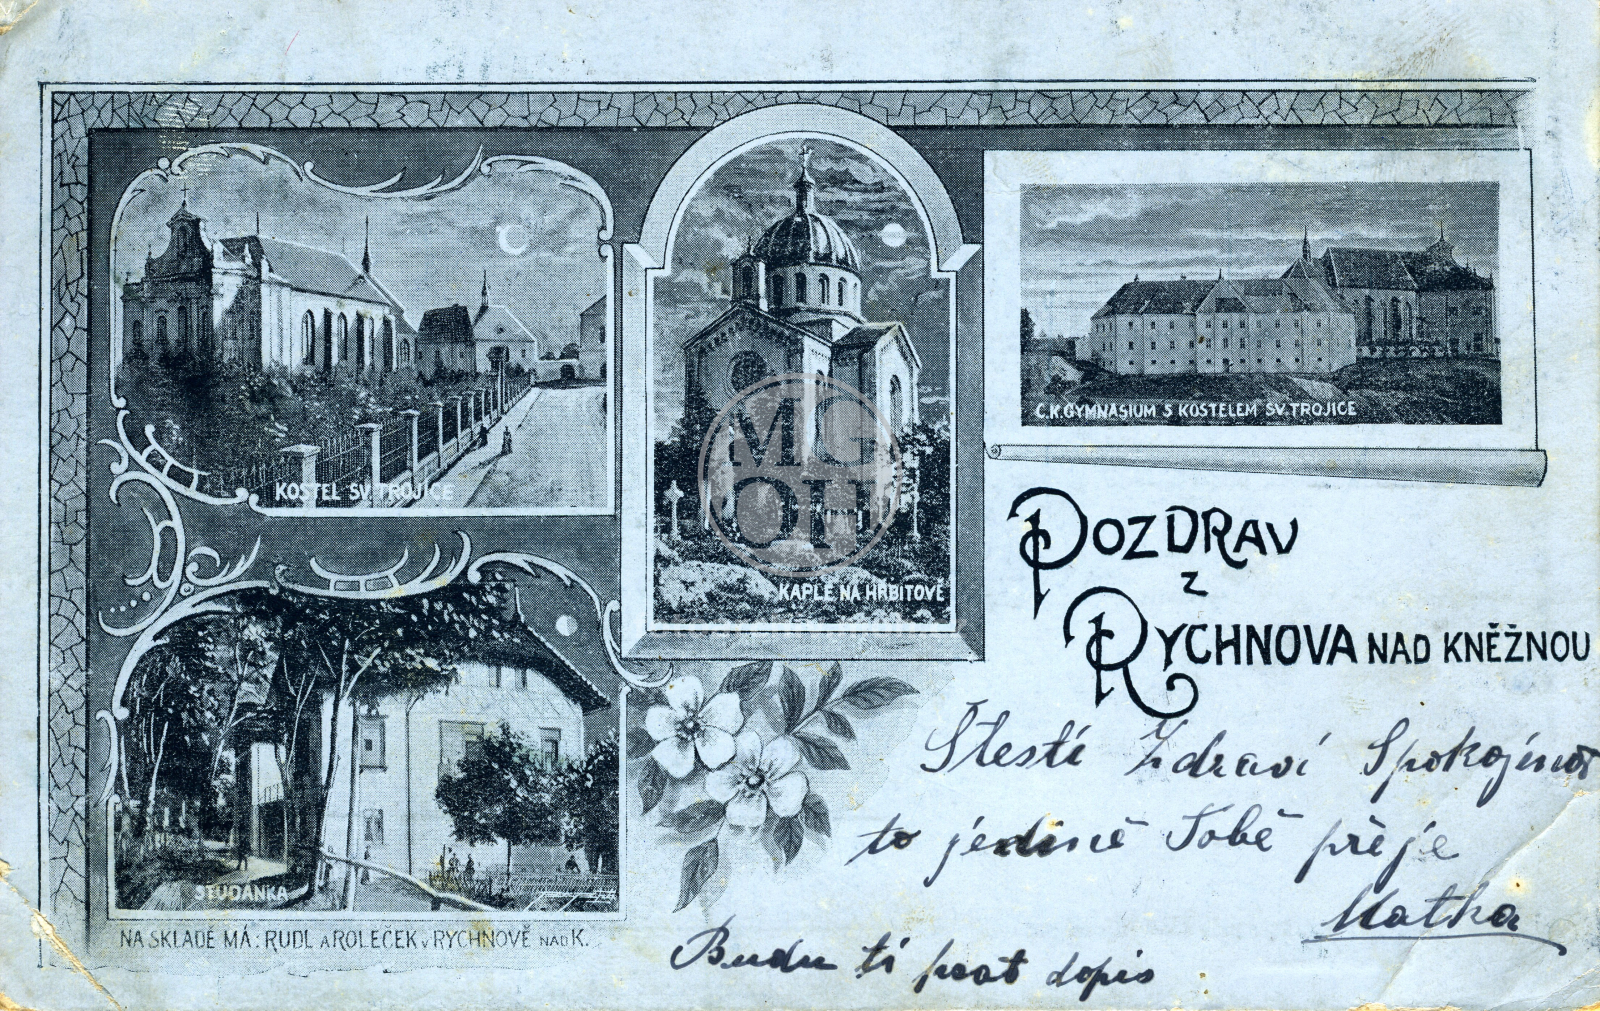 KOSTEL SV. TROJICE
KAPLE NA HRBITOVĚ
C.K. GYMNASIUM S KOSTELEM SV. TROJICE
MG
OH
POZDRAV
Z
RYCHNOVA NAD KNĚŽNOU
Štestí Zdraví Spokojnost
to jedině Tobě přeje
Matka
Budu ti psat dopis
STUDÁNKA
NA SKLADĚ MÁ: RUDL A ROLEČEK V RYCHNOVĚ NAD K.